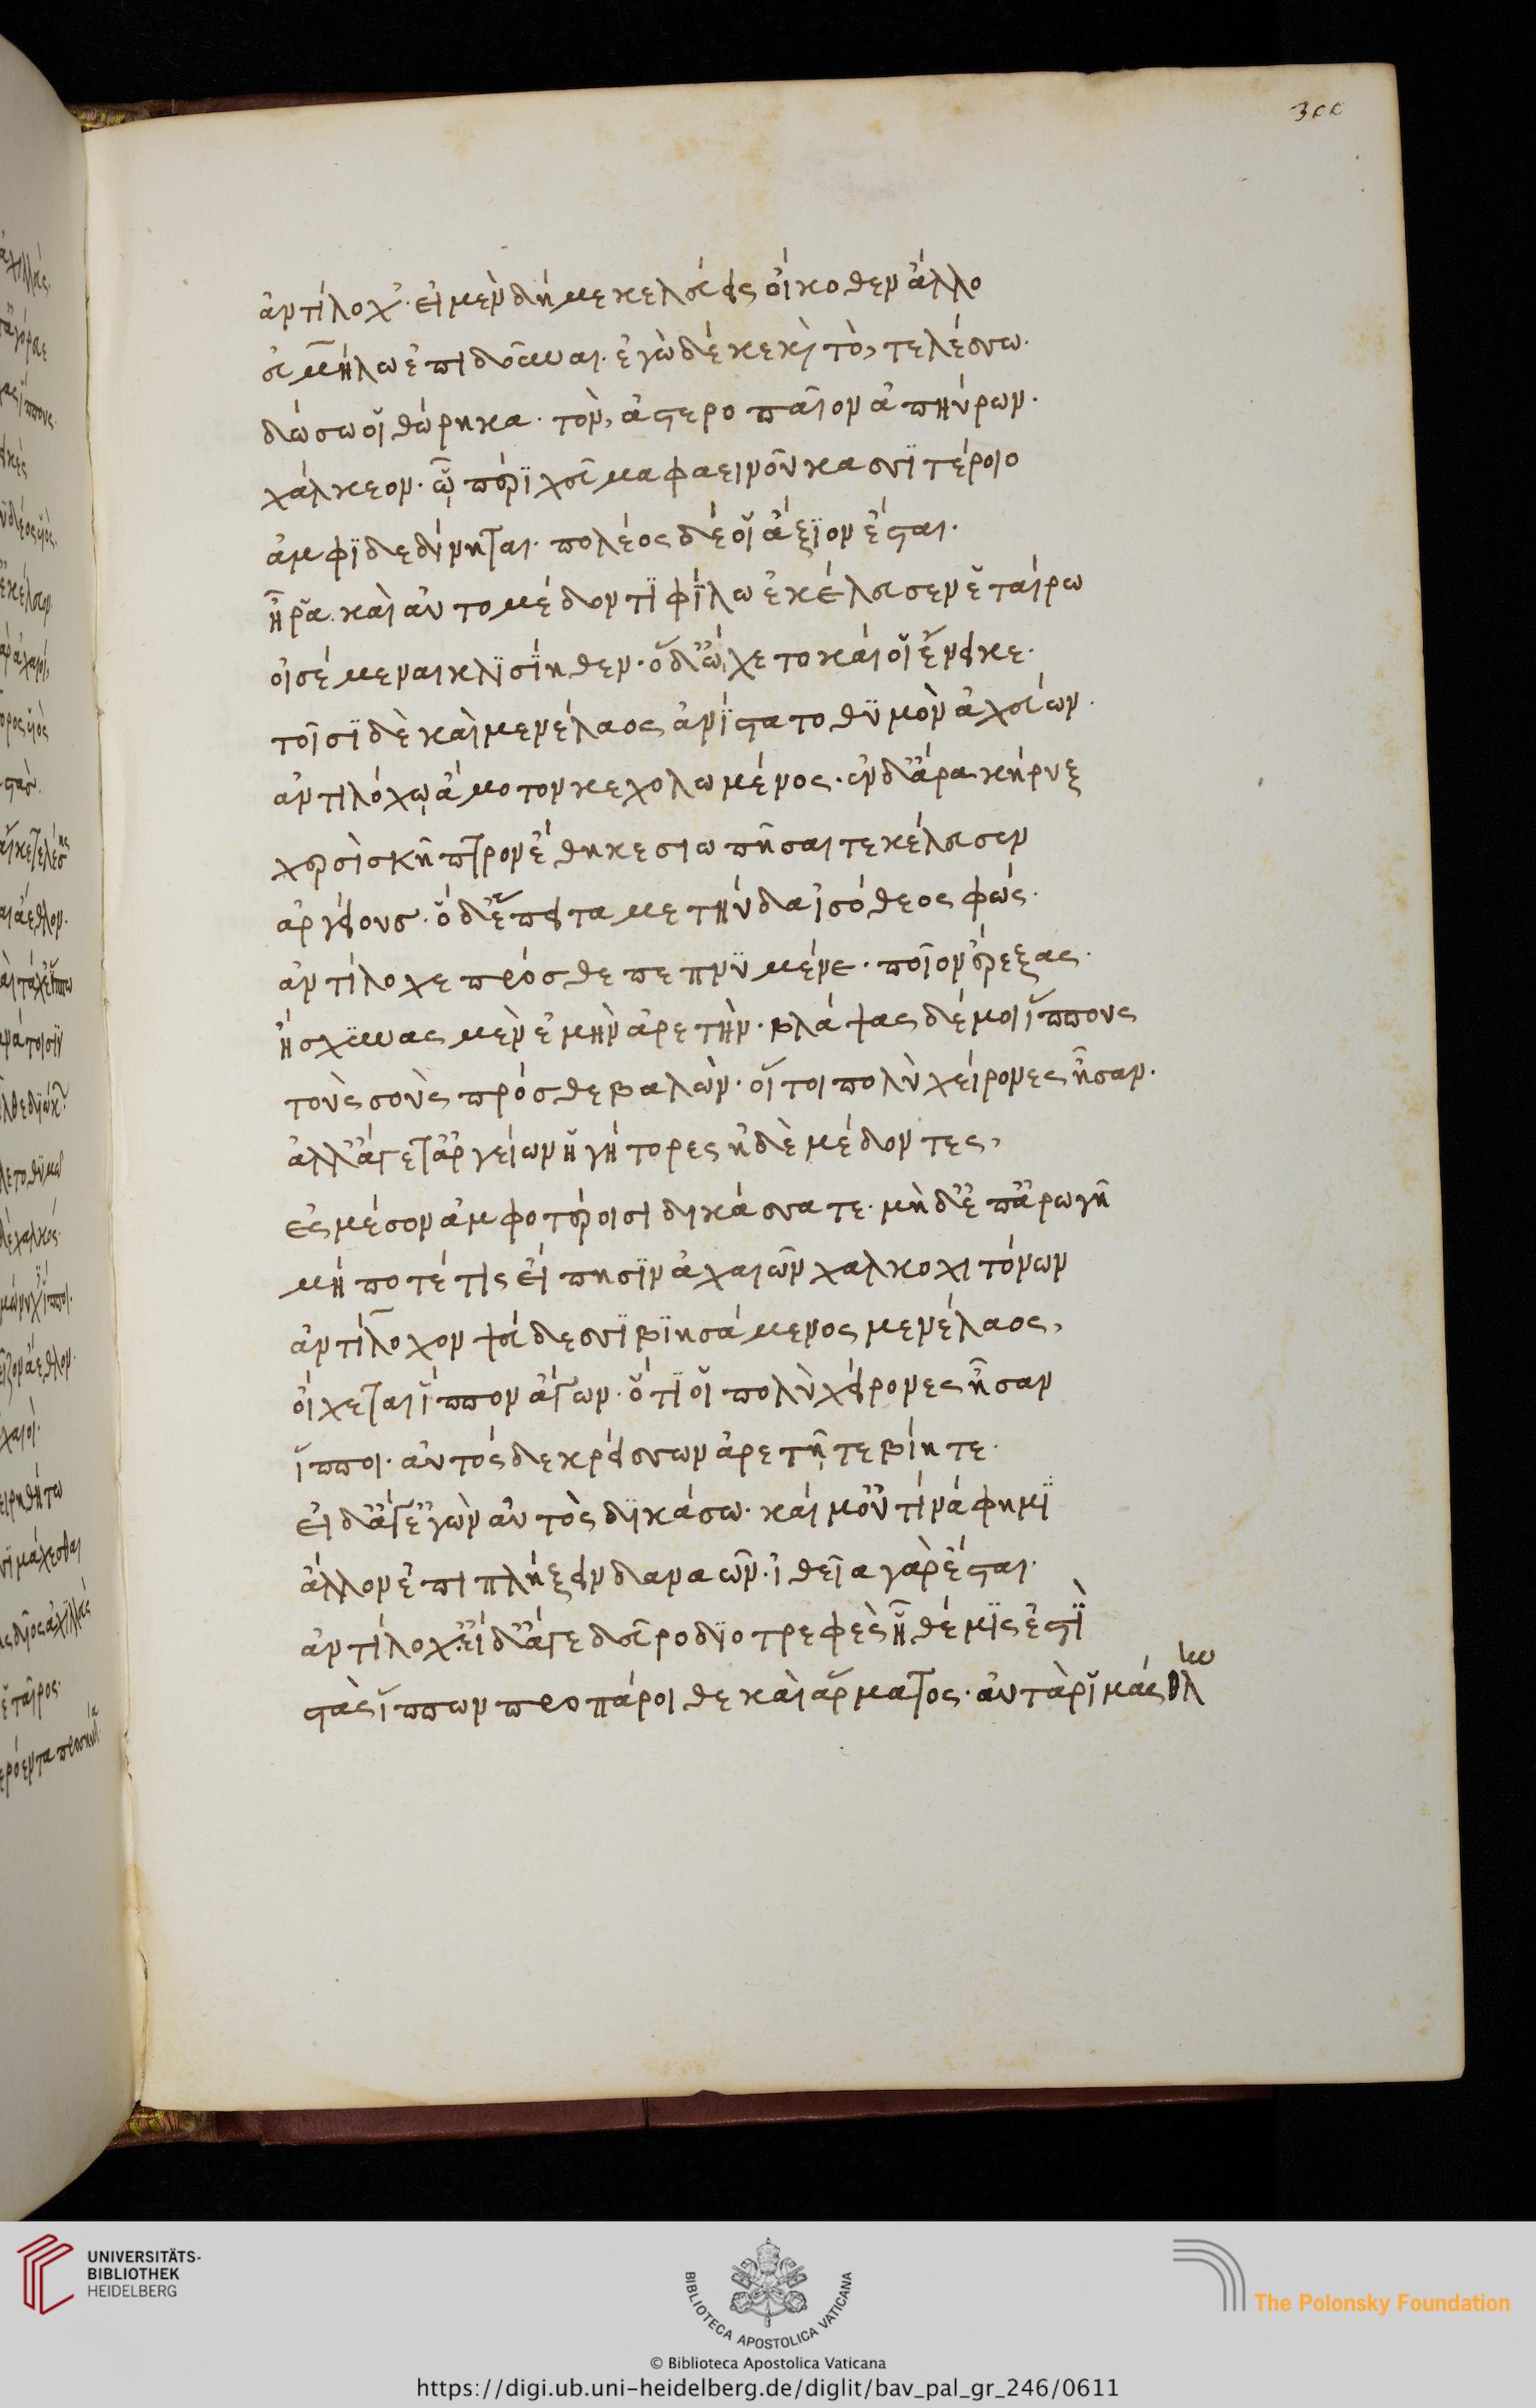 300
ἀντίλοχ'. εἰ μὲν δή με κελεύεις οἴκοθεν ἄλλο
εὐμήλω ἐπιδοῦναι. ἐγὼ δέ κε καὶ τὸ, τελέσσω.
δώσω οἱ θώρηκα. τὸν, ἀστεροπαῖον ἀπηύρων.
χάλκεον. ᾧ πέρϊ χεῦμα φαεινοῦ κασσϊτέροιο
ἀμφϊδεδίνηται. πολέος δέ οἱ ἄξϊον ἔσται.
ἦ ῥα. καὶ αὐτομέδοντϊ φίλω ἐκέλευσεν ἑταίρω
οἰσέμεναι κλϊσΐηθεν. ὁ δ' ὤχετο καί οἱ ἔνεικε.
τοῖσϊ δὲ καὶ μενέλαος ἀνΐστατο θϋμὸν ἀχεύων.
ἀντιλόχῳ ἄμοτον κεχολωμένος. ἐν δ' ἄρα κήρυξ
χερσὶ σκῆπτρον ἔθηκε σιωπῆσαι τε κέλευσεν
ἀργείους. ὁ δ' ἔπειτα μετηύδα ἰσόθεος φώς.
ἀντίλοχε πρόσθε πεπνϋμένε. ποῖον ἔρεξας.
ἤσχϋνας μὲν ἐμὴν ἀρετὴν. βλάψας δέ μοι ἵππους
τοὺς σοὺς πρόσθε βαλὼν. οἵ τοι πολὺ χείρονες ἦσαν.
ἀλλ' ἄγετ' ἀργείων ἡγήτορες ἠδὲ μέδοντες,
ἐς μέσον ἀμφοτέροισι δικάσσατε. μὴ δ' ἐπ' ἀρωγῆ
μή ποτέ τις εἴπησϊν ἀχαιῶν χαλκοχιτόνων
ἀντίλοχον ψεύδεσσϊ βϊησάμενος μενέλαος,
οἴχεται ἵππον ἄγων. ὅτϊ οἱ πολὺ χείρονες ἦσαν
ἵπποι. αὐτός δε κρείσσων ἀρετῆ τε βίη τε.
εἰ δ' ἄγ' ἐγὼν αὐτὸς δϊκάσω. καί μ' οὔ τίνά φημϊ
ἄλλον ἐπιπλήξειν δαναῶν. ἰθεῖα γὰρ ἔσται.
ἀντίλοχ' εἰ δ' ἄγε δεῦρο δϊοτρεφὲς ἣ θέμϊς ἐστΐ
στὰς ἵππων προπάροιθε καὶ ἅρματος. αὐτὰρ ἱμάσθλω
UNIVERSITÄTS-
BIBLIOTHEK
HEIDELBERG
BIBLIOTECA APOSTOLICA VATICANA
The Polonsky Foundation
© Biblioteca Apostolica Vaticana
https://digi.ub.uni-heidelberg.de/diglit/bav_pal_gr_246/0611